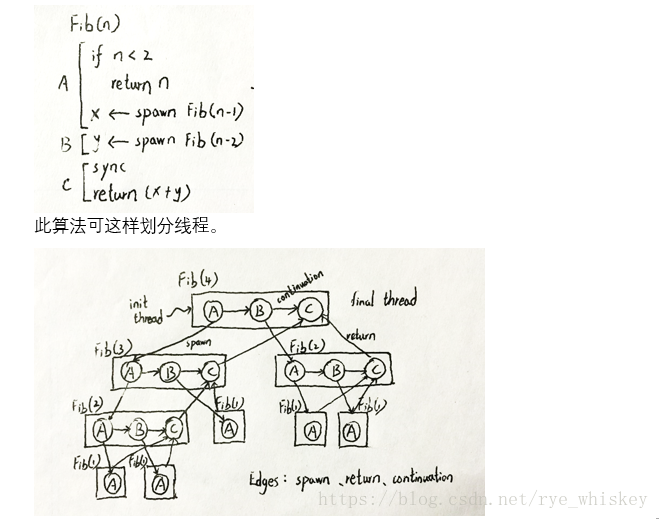 Fib(n)
if n < 2
A
return n
x ← spawn Fib(n-1)
B y ← spawn Fib(n-2)
sync
C
return (x+y)
此算法可这样划分线程。
Fib(4)
continuation
init thread
A B C
final thread
spawn
return
Fib(3)
Fib(2)
A B C
A B C
Fib(2)
Fib(1)
Fib(1)
Fib(1)
A B C
A
A
A
Fib(1)
Fib(1)
A
A
Edges: spawn、return、continuation
https://blog.csdn.net/rye_whiskey